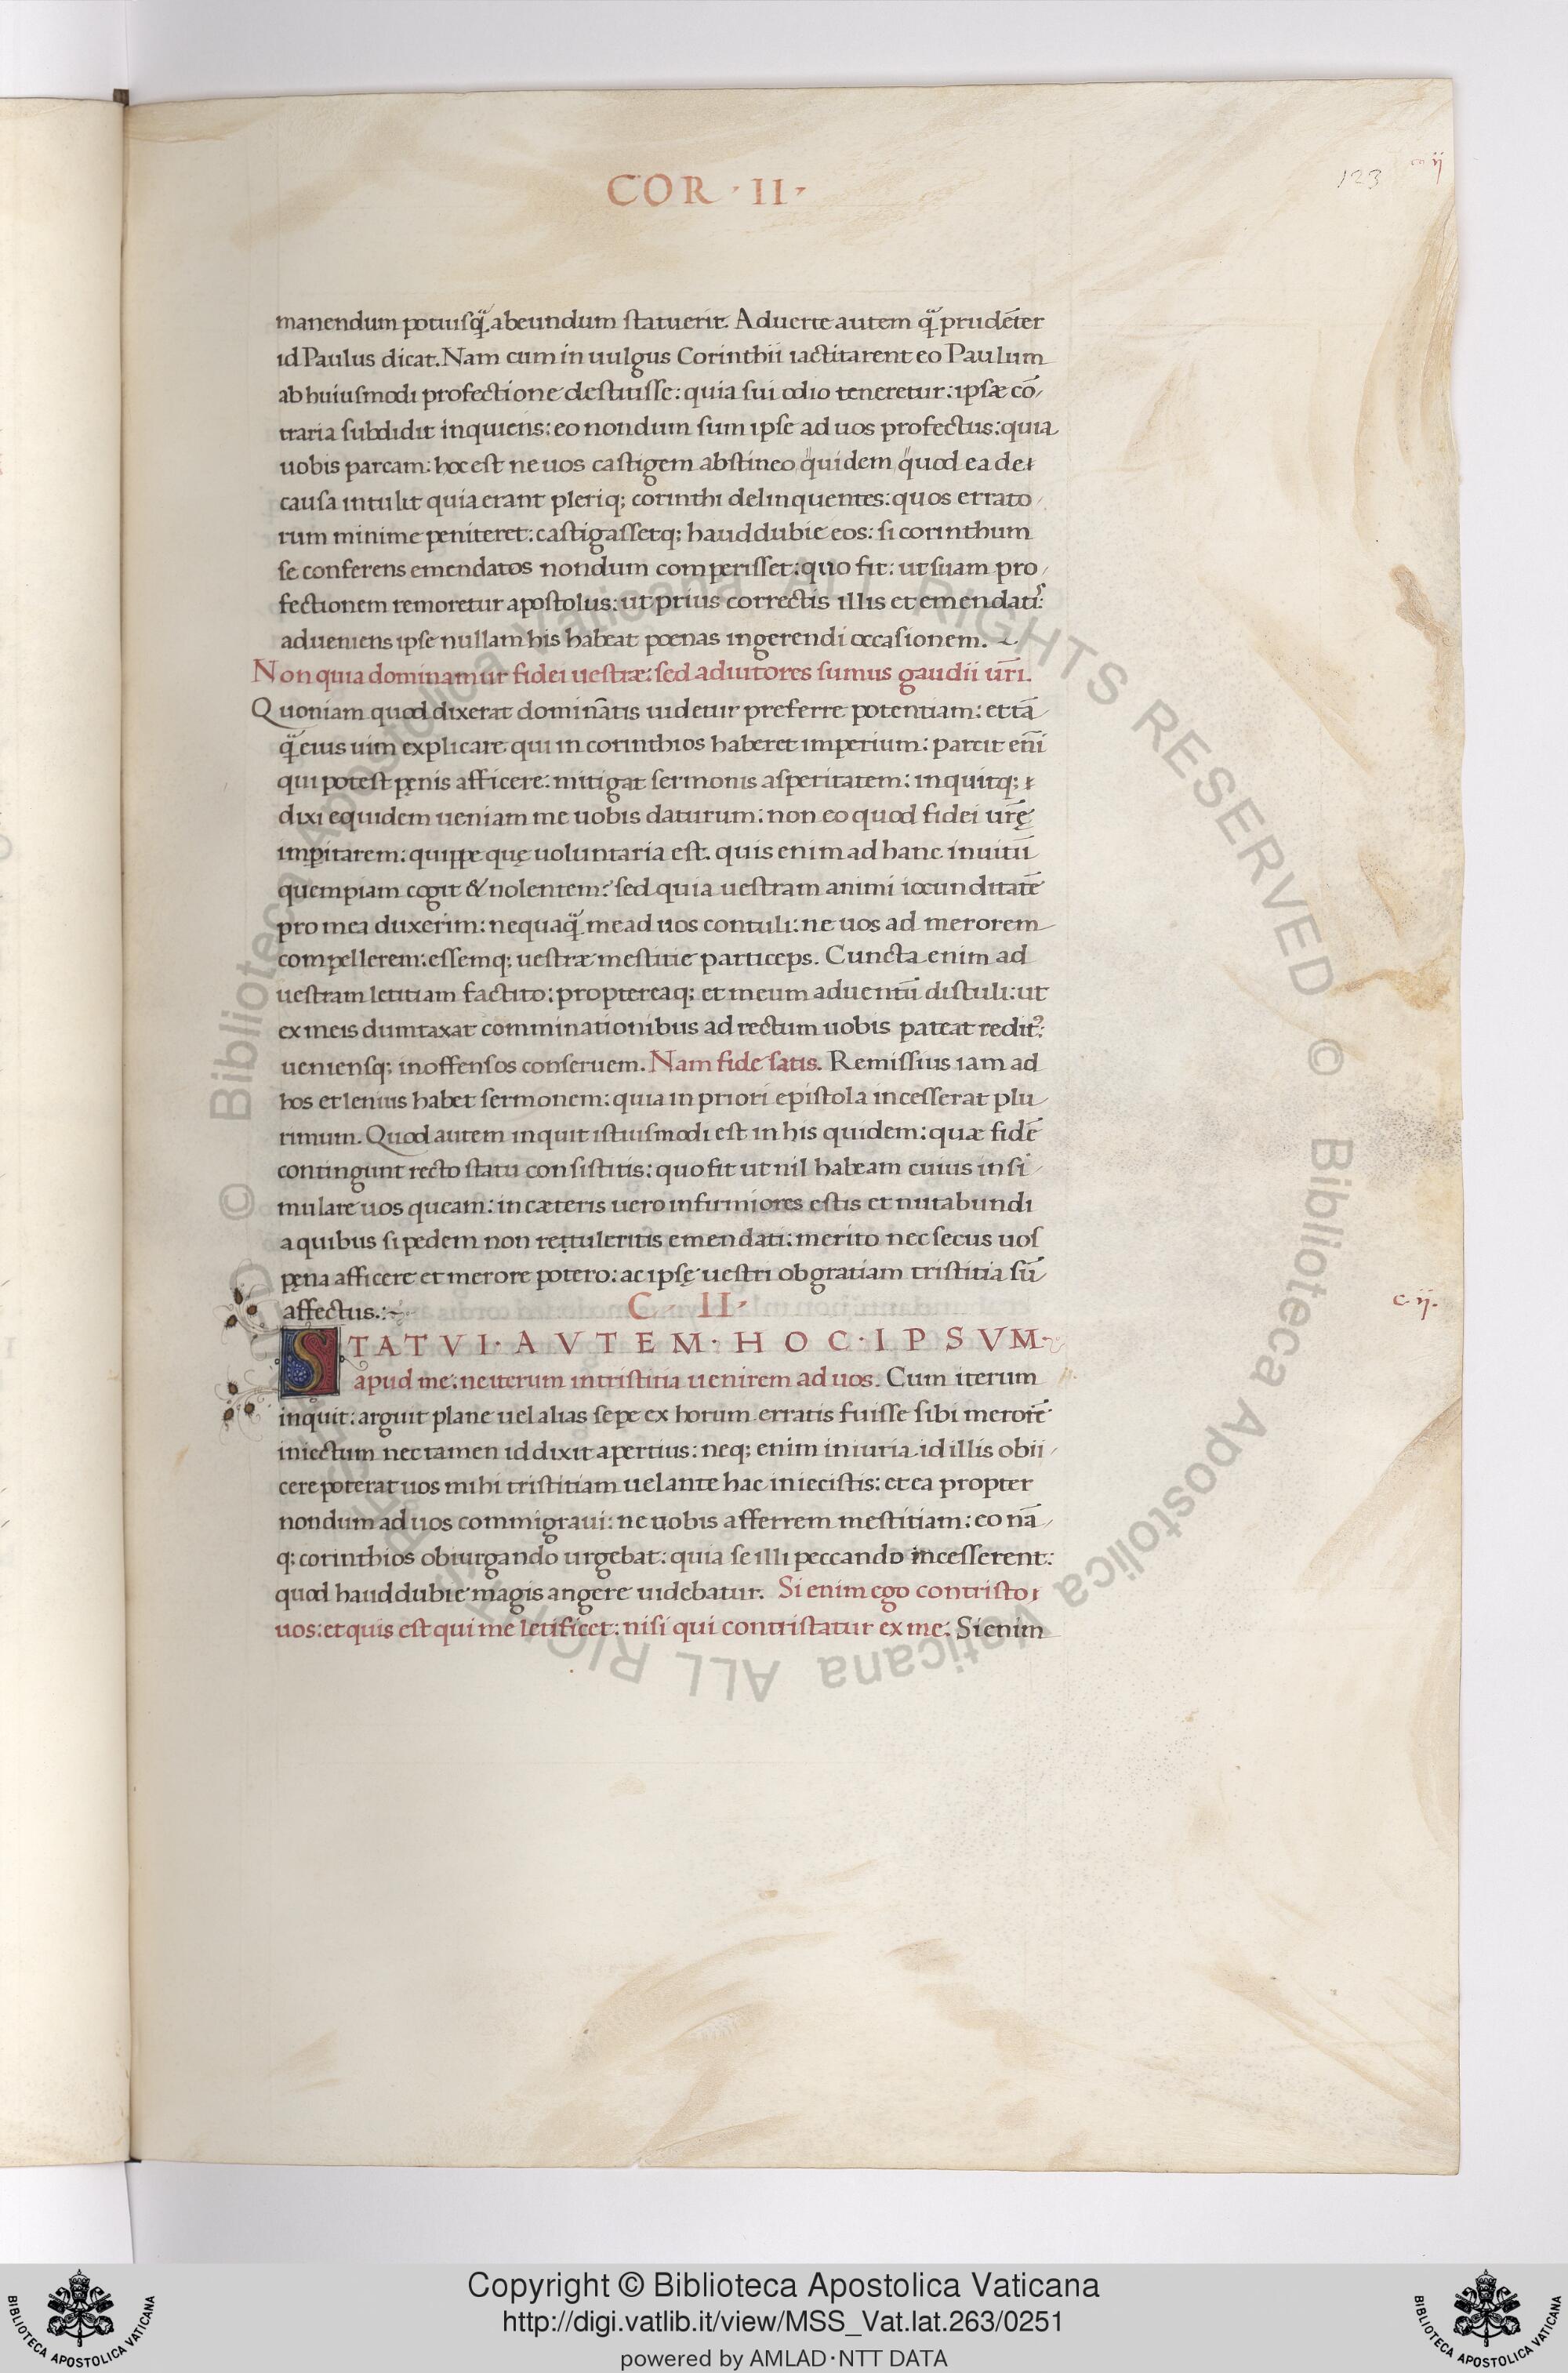 COR · II ·
123
c ij
manendum potiusq̃, abeundum statuerit. Aduerte autem q̃ prudẽter
id Paulus dicat. Nam cum in uulgus Corinthii iactitarent eo Paulum
ab huiusmodi profectione destitisse: quia sui odio teneretur: ipsæ cõ
traria subdidit inquiens: eo nondum sum ipse ad uos profectus: quia
uobis parcam: hoc est ne uos castigem abstineo quidem quod ea de
causa intulit quia erant pleriq; corinthi delinquentes: quos errato
rum minime peniteret: castigassetq; haud dubie eos: si corinthum
se conferens emendatos nondum comperisset: quo fit: ut suam pro
fectionem remoretur apostolus: ut prius correctis illis et emendatis:
adueniens ipse nullam his habeat poenas ingerendi occasionem.
Non quia dominamur fidei uestræ: sed adiutores sumus gaudii ur̃i.
Quoniam quod dixerat dominãtis uidetur preferre potentiam: et tã
q̃ eius uim explicare qui in corinthios haberet imperium: parcit eñi
qui potest pęnis afficere: mitigat sermonis asperitatem: inquitq;
dixi equidem ueniam me uobis daturum: non eo quod fidei ur̃ę
imꝑitarem: quippe quę uoluntaria est. quis enim ad hanc inuitũ
quempiam cogit & nolentem: sed quia uestram animi iocunditatẽ
pro mea duxerim: nequaq̃ me ad uos contuli: ne uos ad merorem
compellerem: essemq; uestræ mestitie particeps. Cuncta enim ad
uestram letitiam factito: proptereaq; et meum aduentũ distuli: ut
ex meis dumtaxat comminationibus ad rectum uobis pateat reditꝰ:
ueniensq; inoffensos conseruem. Nam fide satis. Remissius iam ad
hos et lenius habet sermonem: quia in priori epistola incesserat plu
rimum. Quod autem inquit istiusmodi est in his quidem: quæ fidẽ
contingunt recto statu consistitis: quo fit ut nil habeam cuius insi
mulare uos queam: in cæteris uero infirmiores estis et nutabundi
a quibus si pedem non rettuleritis emendati: merito nec secus uos
pęna afficere et merore potero: ac ipsę uestri ob gratiam tristitia sũ
affectus.:~
C · II ·
c. ij.
STATVI · AVTEM · HOC · IPSVM ·
apud me: ne iterum in tristitia uenirem ad uos. Cum iterum
inquit: arguit plane uel alias sepe ex horum erratis fuisse sibi merorẽ
iniectum nec tamen id dixit apertius: neq; enim iniuria id illis obii
cere poterat uos mihi tristitiam uel ante hac iniecistis: et ea propter
nondum ad uos commigraui: ne uobis afferrem mestitiam: eo nã
q; corinthios obiurgando urgebat: quia se illi peccando incesserent:
quod haud dubie magis angere uidebatur. Si enim ego contristo
uos: et quis est qui me letificet: nisi qui contristatur ex me: Si enim
© Biblioteca Apostolica Vaticana ALL RIGHTS RESERVED
Copyright © Biblioteca Apostolica Vaticana
http://digi.vatlib.it/view/MSS_Vat.lat.263/0251
powered by AMLAD·NTT DATA
BIBLIOTECA APOSTOLICA VATICANA
BIBLIOTECA APOSTOLICA VATICANA